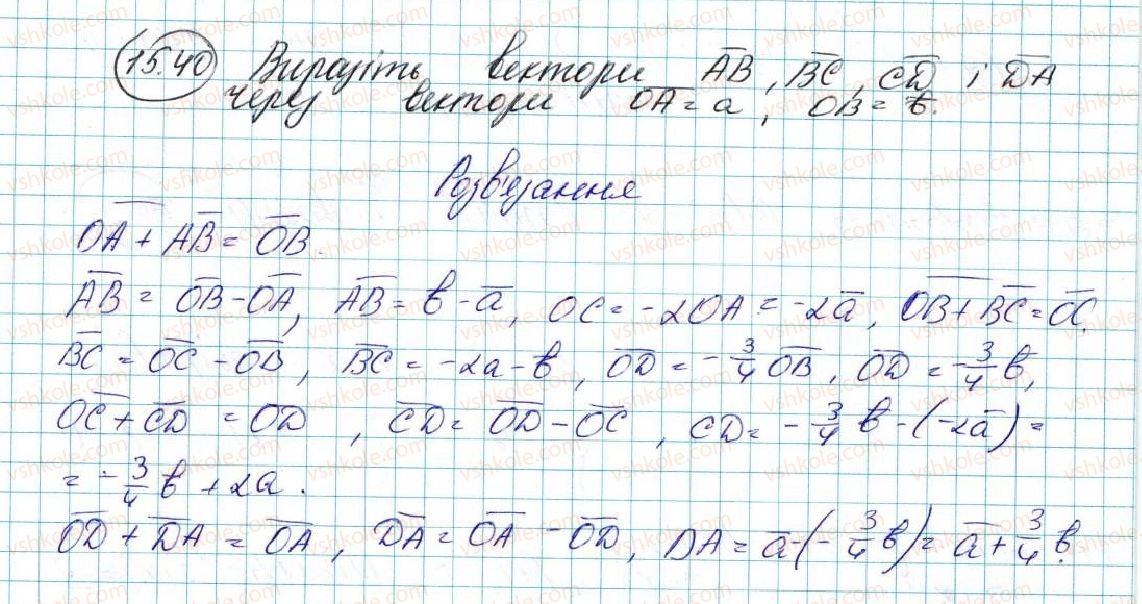 15.40 Виразіть вектори A̅B̅, B̅C̅, C̅D̅ і D̅A̅
через вектори O̅A̅ = a, O̅B̅ = b̅.
Розв'язання
O̅A̅ + A̅B̅ = O̅B̅.
A̅B̅ = O̅B̅ - O̅A̅, A̅B̅ = b - a̅, OC = -2OA = -2a̅, O̅B̅ + B̅C̅ = O̅C̅.
B̅C̅ = O̅C̅ - O̅B̅, B̅C̅ = -2a - b, O̅D̅ = -3/4 O̅B̅, O̅D̅ = -3/4 b̅,
O̅C̅ + C̅D̅ = O̅D̅, C̅D̅ = O̅D̅ - O̅C̅, CD = -3/4 b - (-2a̅) =
= -3/4 b + 2a.
O̅D̅ + D̅A̅ = O̅A̅, D̅A̅ = O̅A̅ - O̅D̅, DA = a - (-3/4 b) = a̅ + 3/4 b.